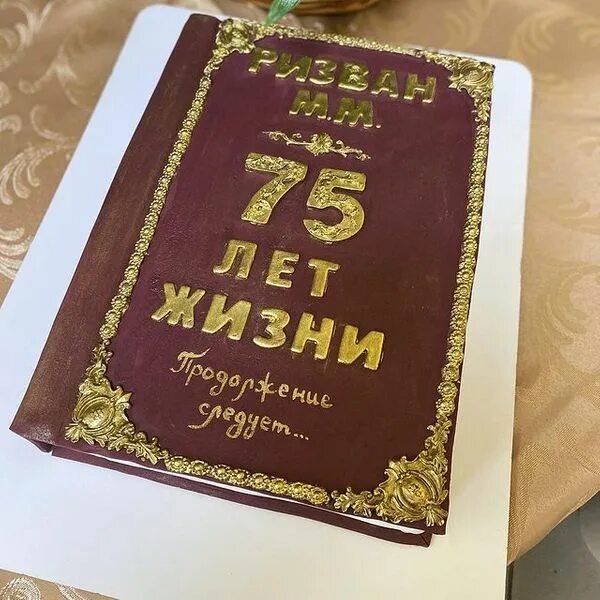 РИЗВАН
М.М.
75
ЛЕТ
ЖИЗНИ
Продолжение
следует...